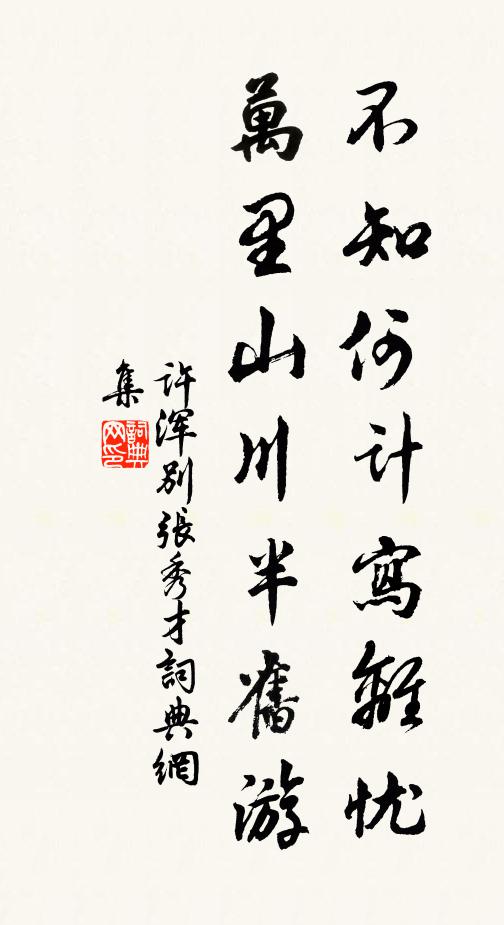 不知何计寫離忧
萬里山川半舊游
许渾别張秀才詞典網
集
詞典
网印